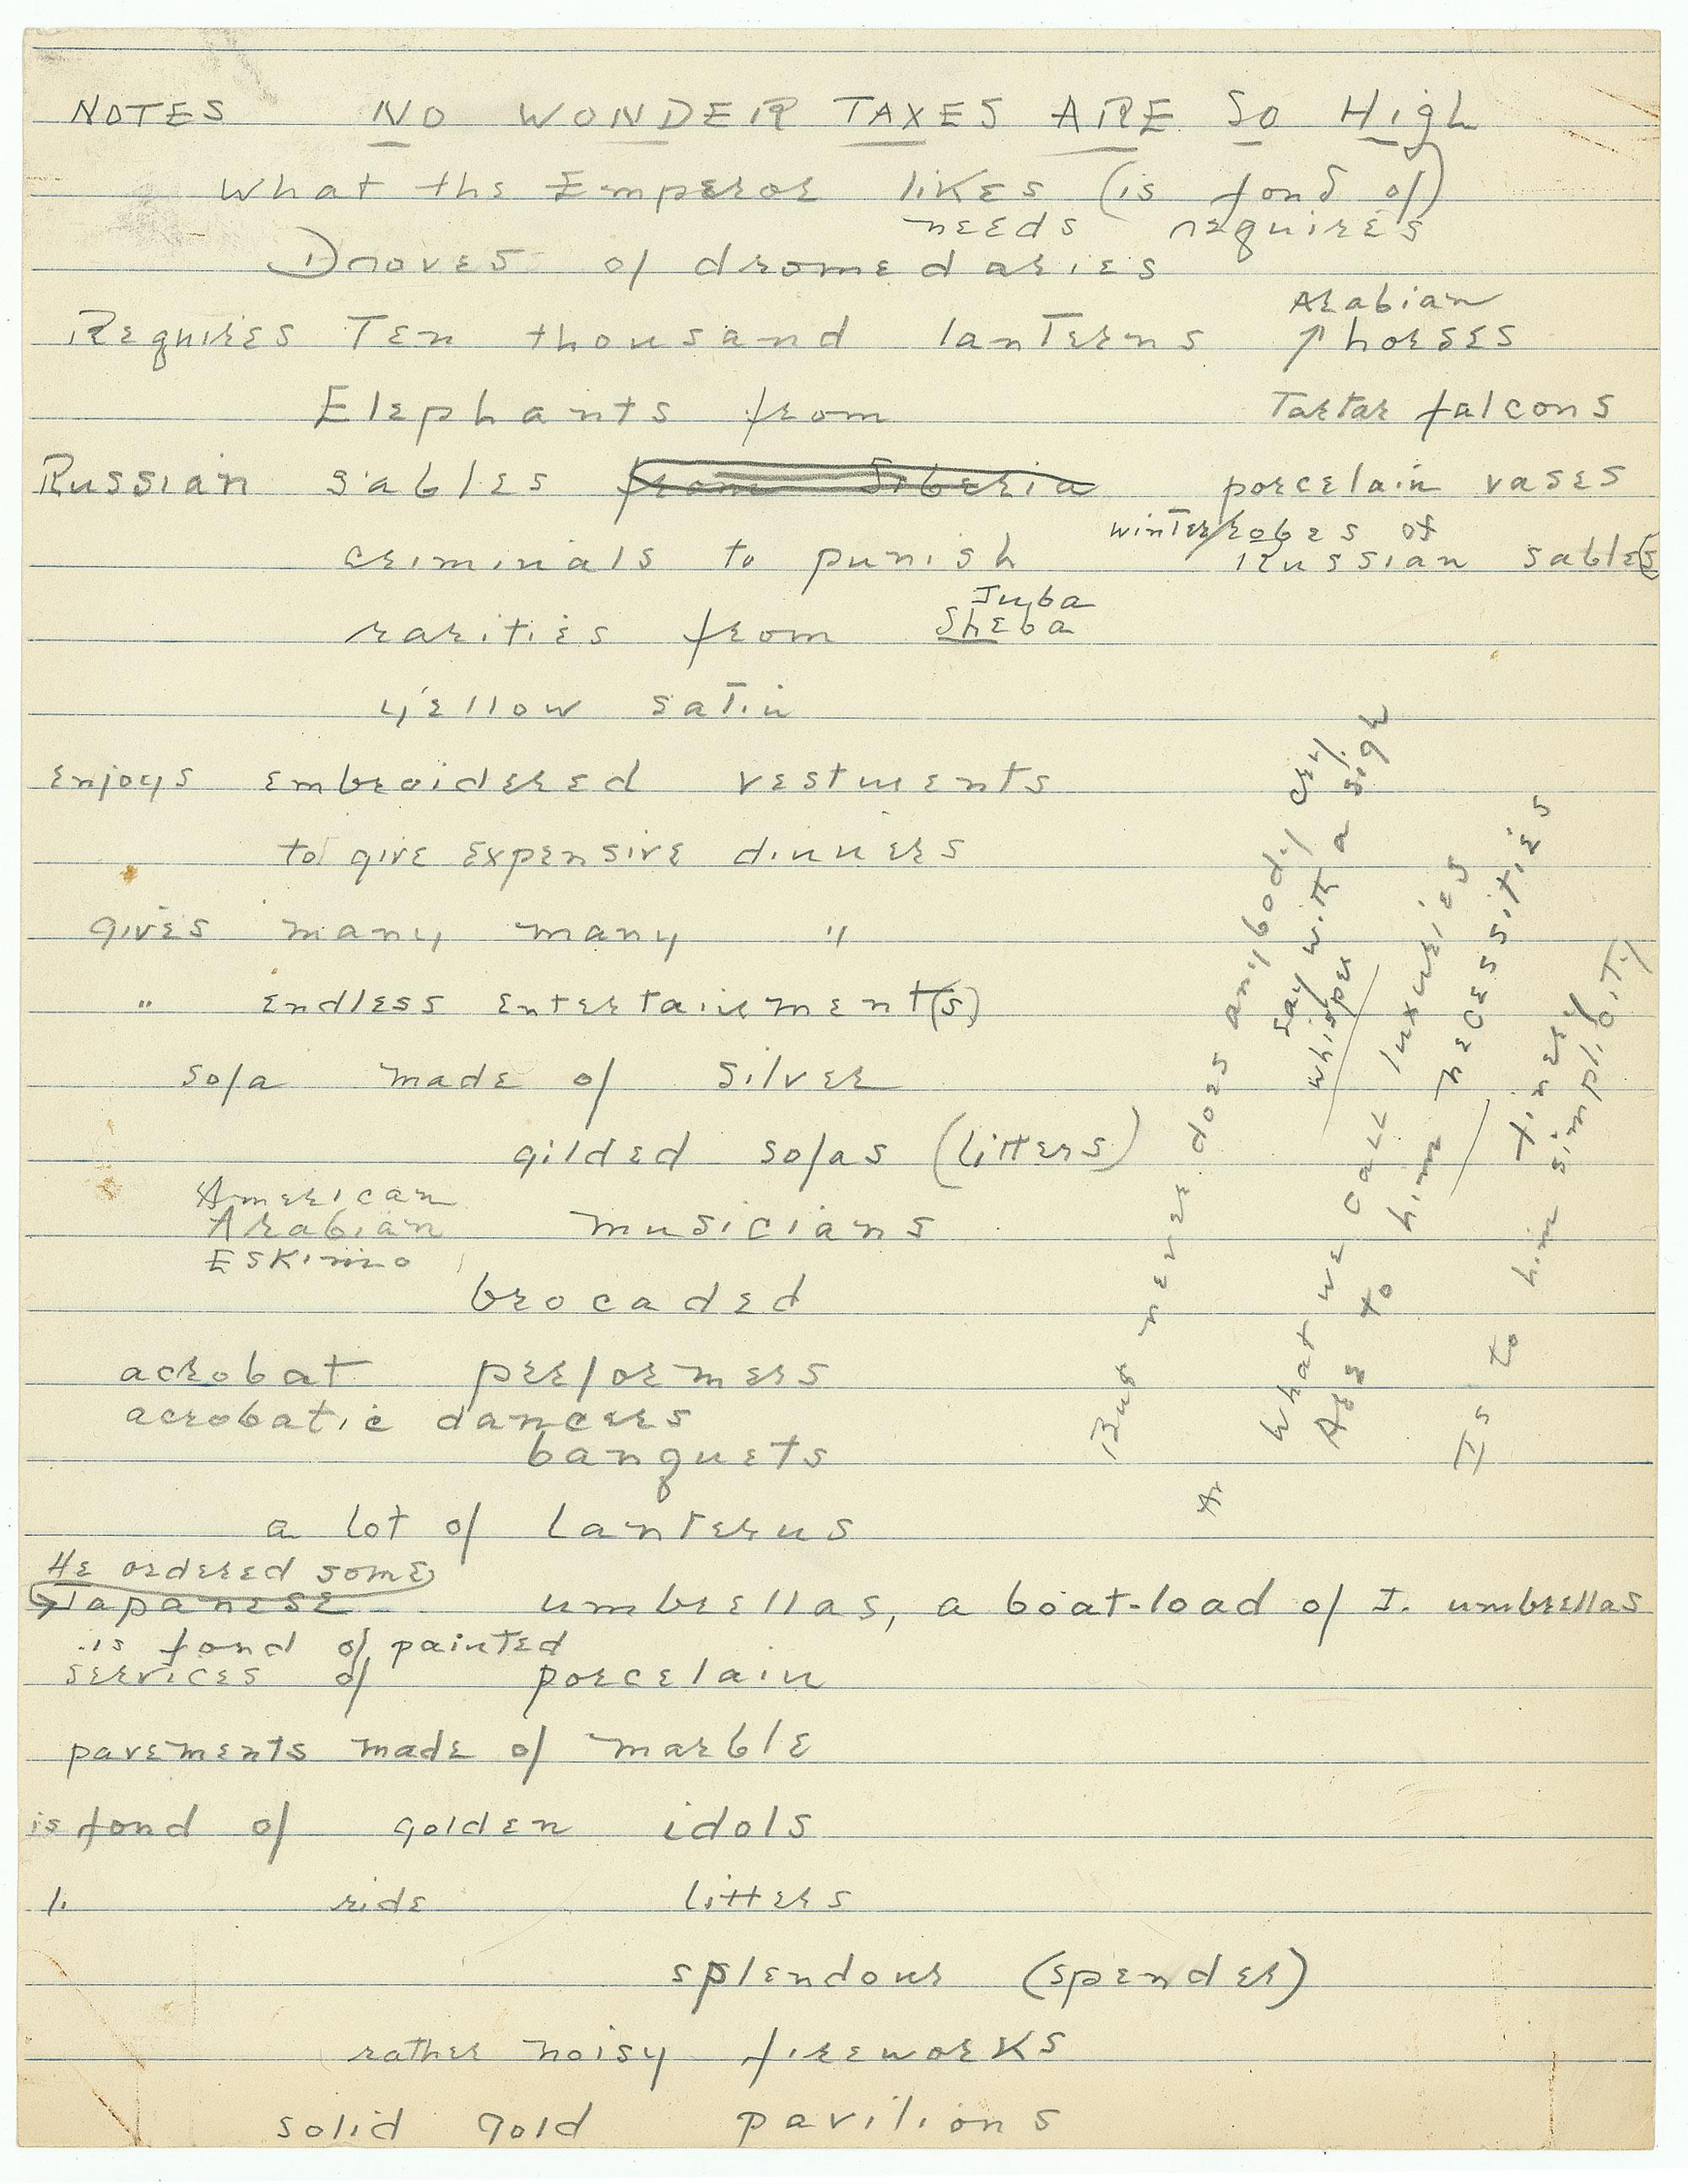 NOTES NO WONDER TAXES ARE SO HIgh
What the Emperor likes (is fond of)
needs requires
Droves of dromedaries
Arabian
Requires Ten thousand lanterns ↑ horses
Elephants from Tartar falcons
Russian sables from Siberia porcelain vases
winter/robes of
criminals to punish Russian sables
Juba
rarities from Sheba
yellow satin
enjoys embroidered vestments
to give expensive dinners
gives many many "
" endless entertainment(s)
sofa made of silver
gilded sofas (litters)
American
Arabian musicians
Eskimo
brocaded
acrobat performers
acrobatic dancers
banquets
a lot of lanterns
He ordered some
Japanese umbrellas, a boat-load of J. umbrellas
is fond of painted
services of porcelain
pavements made of marble
is fond of golden idols
" ride litters
splendour (spender)
rather noisy fireworks
solid gold pavilions
But never does anybody cry
say with a sigh
whisper
What we call luxuries
Are to him necessities
Is to him finery
simplicity